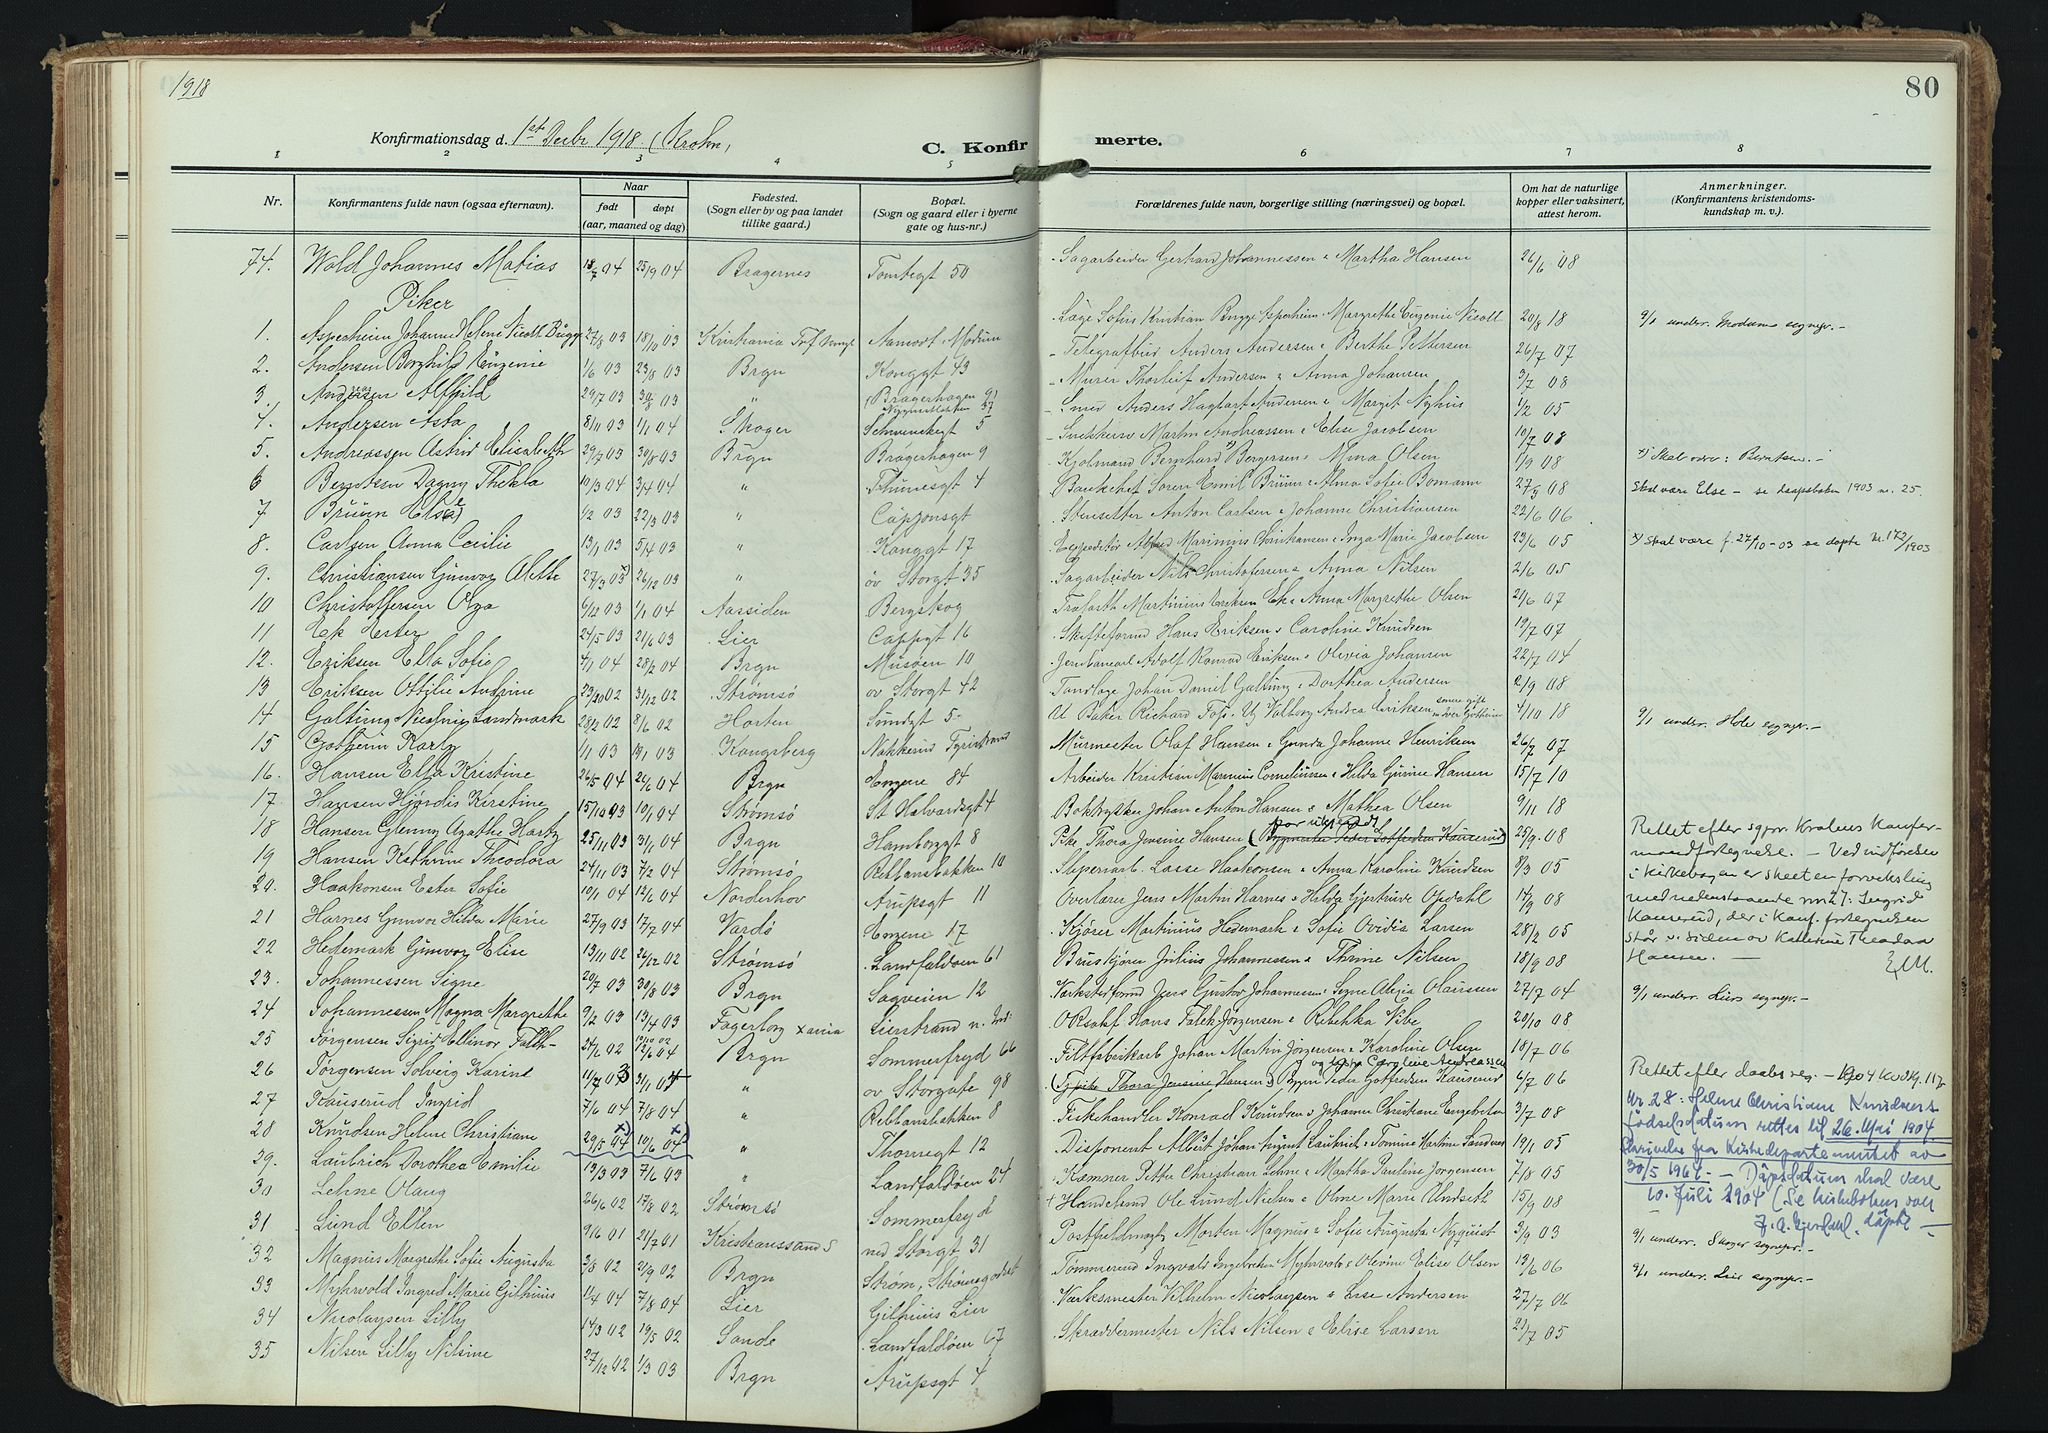 1918
80
Konfirmationsdag d. 1ste Decbr 1918. (Krohn)
C. Konfirmerte.
1 2 3 4 5 6 7 8
Nr.
Konfirmantens fulde navn (ogsaa efternavn).
Naar
født
døpt
(aar, maaned og dag)
Fødested.
(Sogn eller by og paa landet
tillike gaard.)
Bopæl.
(Sogn og gaard eller i byerne
gate og hus-nr.)
Forældrenes fulde navn, borgerlige stilling (næringsvei) og bopæl.
Om hat de naturlige
kopper eller vaksinert,
attest herom.
Anmerkninger.
(Konfirmantens kristendoms-
kundskap m. v.)
74. Wold Johannes Matias 18/7 04 25/9 04 Bragernes Tomtegt 50 Sagarbeider Gerhard Johannessen & Martha Hansen 26/6 08
Piker
1. Asperheim Johanne Helene Nicoll Bugge 27/8 03 18/10 03 Kristiania Aamodt Modum Læge Sofus Kristian Bugge Asperheim & Margrethe Eugenie Nicoll 20/8 18 9/1 underr. Modums sognepr. -
2. Andersen Borghild Eugenie 1/6 03 23/8 03 Brgn Konggt 43 Telegrafbud Anders Andersen & Berthe Pettersen 26/7 07
3. Andersen Alfhild 29/7 03 30/8 03 " Bragerhagen 9 Murer Thorleif Andersen & Anna Johansen 3/7 08
4. Andersen Asta 8/11 03 1/1 04 Skoger Schwenckegt 5 Smed Anders Hagbart Andersen & Margit Nyhus 1/2 05
5. Andreassen Astrid Elisabeth 29/7 03 30/8 03 Brgn Bragerhagen 9 Snekkersv Martin Andreassen & Elise Jacobsen 10/7 08
6 Berntsen Dagny Thekla 10/3 04 3/4 04 " Thunesgt 4 Kjølmand Bernhard Bergersen & Mina Olsen 1/9 08 x) Skal være: Berntsen. -
7 Bruun Else 1/2 03 22/3 03 " Cappensgt Bankchef Søren Emil Bruun & Alma Sofie Bomann 27/3 08 Skal være Else - se daapsboken 1903 nr. 25.
8. Carlsen Anna Cecilie 13/1 03 5/4 03 " Konggt 17 Stensetter Anton Carlsen & Johanne Christiansen 22/6 06
9. Christiansen Gunvor Alette 27/3 03 26/12 03 " øv Storgt 35 Expeditør Alfred Marinius Christiansen & Inga Marie Jacobsen 23/6 05 x) Skal være f. 27/10-03 se døpte Nr. 172/1903
10 Christoffersen Olga 6/12 03 1/1 04 Aassiden Bergskog Sagarbeider Nils Christofersen & Anna Nilsen 2/6 05
11 Ek Ester 24/5 03 21/6 03 Lier Cappgt 16 Martinius Eriksen Ek & Anna Margrethe Olsen 21/6 07
12. Eriksen Ella Sofie 4/1 04 28/2 04 Brgn Musøen 10 Skifteformd Hans Eriksen & Caroline Knudsen 19/7 07
13 Eriksen Ottilie Andrine 23/10 02 31/12 02 Strømsø øv Storgt 42 Jernbanearb Adolf Konrad Eriksen & Olivia Johansen 22/7 04
14 Galtung Nicoline Landmark 28/2 02 8/6 02 Horten Sundgt 5 Tandlæge Johan Daniel Galtung & Dorthea Andersen 2/9 08
15 Gotheim Karly 1/1 03 19/1 03 Kongsberg Nakkerud Tyristrand U Baker Richard Foss & Ug Valborg Andrea Eriksen 4/10 18 9/1 underr. Hole sognepr. -
16. Hansen Ella Kristine 26/5 04 26/6 04 Brgn Engene 84 Murmester Olaf Hansen & Gunda Johanne Henriksen 26/7 07
17. Hansen Hjørdis Kirstine 15/10 03 10/1 04 Strømsø St Halvardsgt 4 Arbeider Kristian Marinius Corneliussen & Hilda Gurine Hansen 15/7 10
18 Hansen Glenny Agathe Hartz 25/11 03 31/1 04 Brgn Hamborggt 8 Boktrykker Johan Anton Hansen & Mathea Olsen 9/11 18
19 Hansen Kathrine Theodora 24/11 03 7/2 04 Strømsø Rebbansbakken 10 Pike Thora Jensine Hansen (Bygmester Peder Gotfredsen Kauserud) 25/9 08
Rettet efter sgpr. Krohns Konfir-
mandfortegnelse. - Ved indførelse
i kirkebogen er skeet en forveksling
med nedenstaaende nr 27: Ingrid
Kauserud, der i konf. fortegnelsen
står v. siden av Kathrine Theodora
Hansen. -
20. Haakonsen Ester Sofie 10/1 04 12/6 04 Norderhov Arupsgt 11 Sliperiarb. Lasse Haakonsen & Anna Karoline Knudsen 8/3 05
21 Harnes Gunvor Hilda Marie 27/9 03 17/7 04 Vardø Engene 17 Overlærer Jens Martin Harnes & Hilda Gjertrude Opdahl 14/9 08
22 Hedemark Gunvor Elise 13/11 02 26/12 02 Strømsø Landfaldøen 61 Kjører Martinius Hedemark & Sofie Ovidia Larsen 28/2 05
23. Johannessen Signe 29/7 03 30/8 03 Brgn Sagveien 12 Bruskjører Julius Johannessen & Thrine Nilsen 18/9 08
24 Johannessen Magna Margrethe 9/2 03 13/4 03 Fagerborg Xania Lierstrand Værkstedformd Jens Gustav Johannessen & Signe Alexia Olaussen 27/7 04 9/1 underr. Liers sognepr. -
25 Jørgensen Sigrid Ellinor Falch- 24/6 02 12/6 04 Brgn Sommerfryd 66 O Rsakf Hans Falck-Jørgensen & Rebekka Vibe 29/10 08
26 Jørgensen Solveig Karine 11/7 03 31/1 04 " øv Storgate 98 Filtfabrikarb Johan Martin Jørgensen & Karoline Olsen 18/7 06
27 Kauserud Ingrid 7/6 04 7/8 04 " Rebbansbakken 8 (Pike Thora Jensine Hansen) Bygm Peder Gotfredsen Kauserud 6/7 06 Rettet efter daabsreg. - 1904
28 Knudsen Helene Christiane 29/5 04 10/6 04 " Thornegt 12 Fiskehandler Konrad Knudsen & Johanne Christiane Engebretsen 3/7 08
Nr. 28: Helene Christiane Knudsens
fødselsdatum rettes til 26. Mai 1904
Skrivelse fra Kirkedepartementet av
30/5 1967. - Dåpsdatum skal være
10. Juli 1904 (Se kirkeboken over
døpte -
29. Laubrich Dorothea Emilie 13/3 03 7/6 03 " Landfaldøen 24 Disponent Albert Johan August Laubrich & Tomine Martine Sandnes 19/1 05
30 Lehne Olaug 26/6 02 17/8 02 Strømsø Sommerfryd Kæmner Petter Christian Lehne & Martha Pauline Jørgensen 7/8 05
31 Lund Ellen 9/6 01 21/7 01 Kristianssand S ned Storgt 31 Handelsmd Ole Lund Nielsen & Olme Marie Undseth 15/9 08
32 Magnus Margrethe Sofie Augusta 3/8 02 21/9 02 Brgn Strøm, Strømsgodset Postfuldmægt Morten Magnus & Sofie Augusta Nyquist 3/9 03 9/1 underr. Skoger sognepr. -
33 Myhrvold Ingrid Marie Gilhuus 1/4 04 7/8 04 Lier Gilhuus Lier Tømmermd Ingvald Ingebretsen Myhrvold & Olevine Elise Olsen 13/6 06 9/1 underr. Lier sognepr. -
34 Nicolaysen Lilly 14/3 02 19/5 02 Sande Landfaldøen 67 Værksmester Vilhelm Nicolaysen & Lise Andersen 27/7 06
35 Nilsen Lilly Nilsine 27/12 02 1/3 03 Brgn Arupsgt 4 Skræddermester Nils Nilsen & Elise Larsen 21/7 05